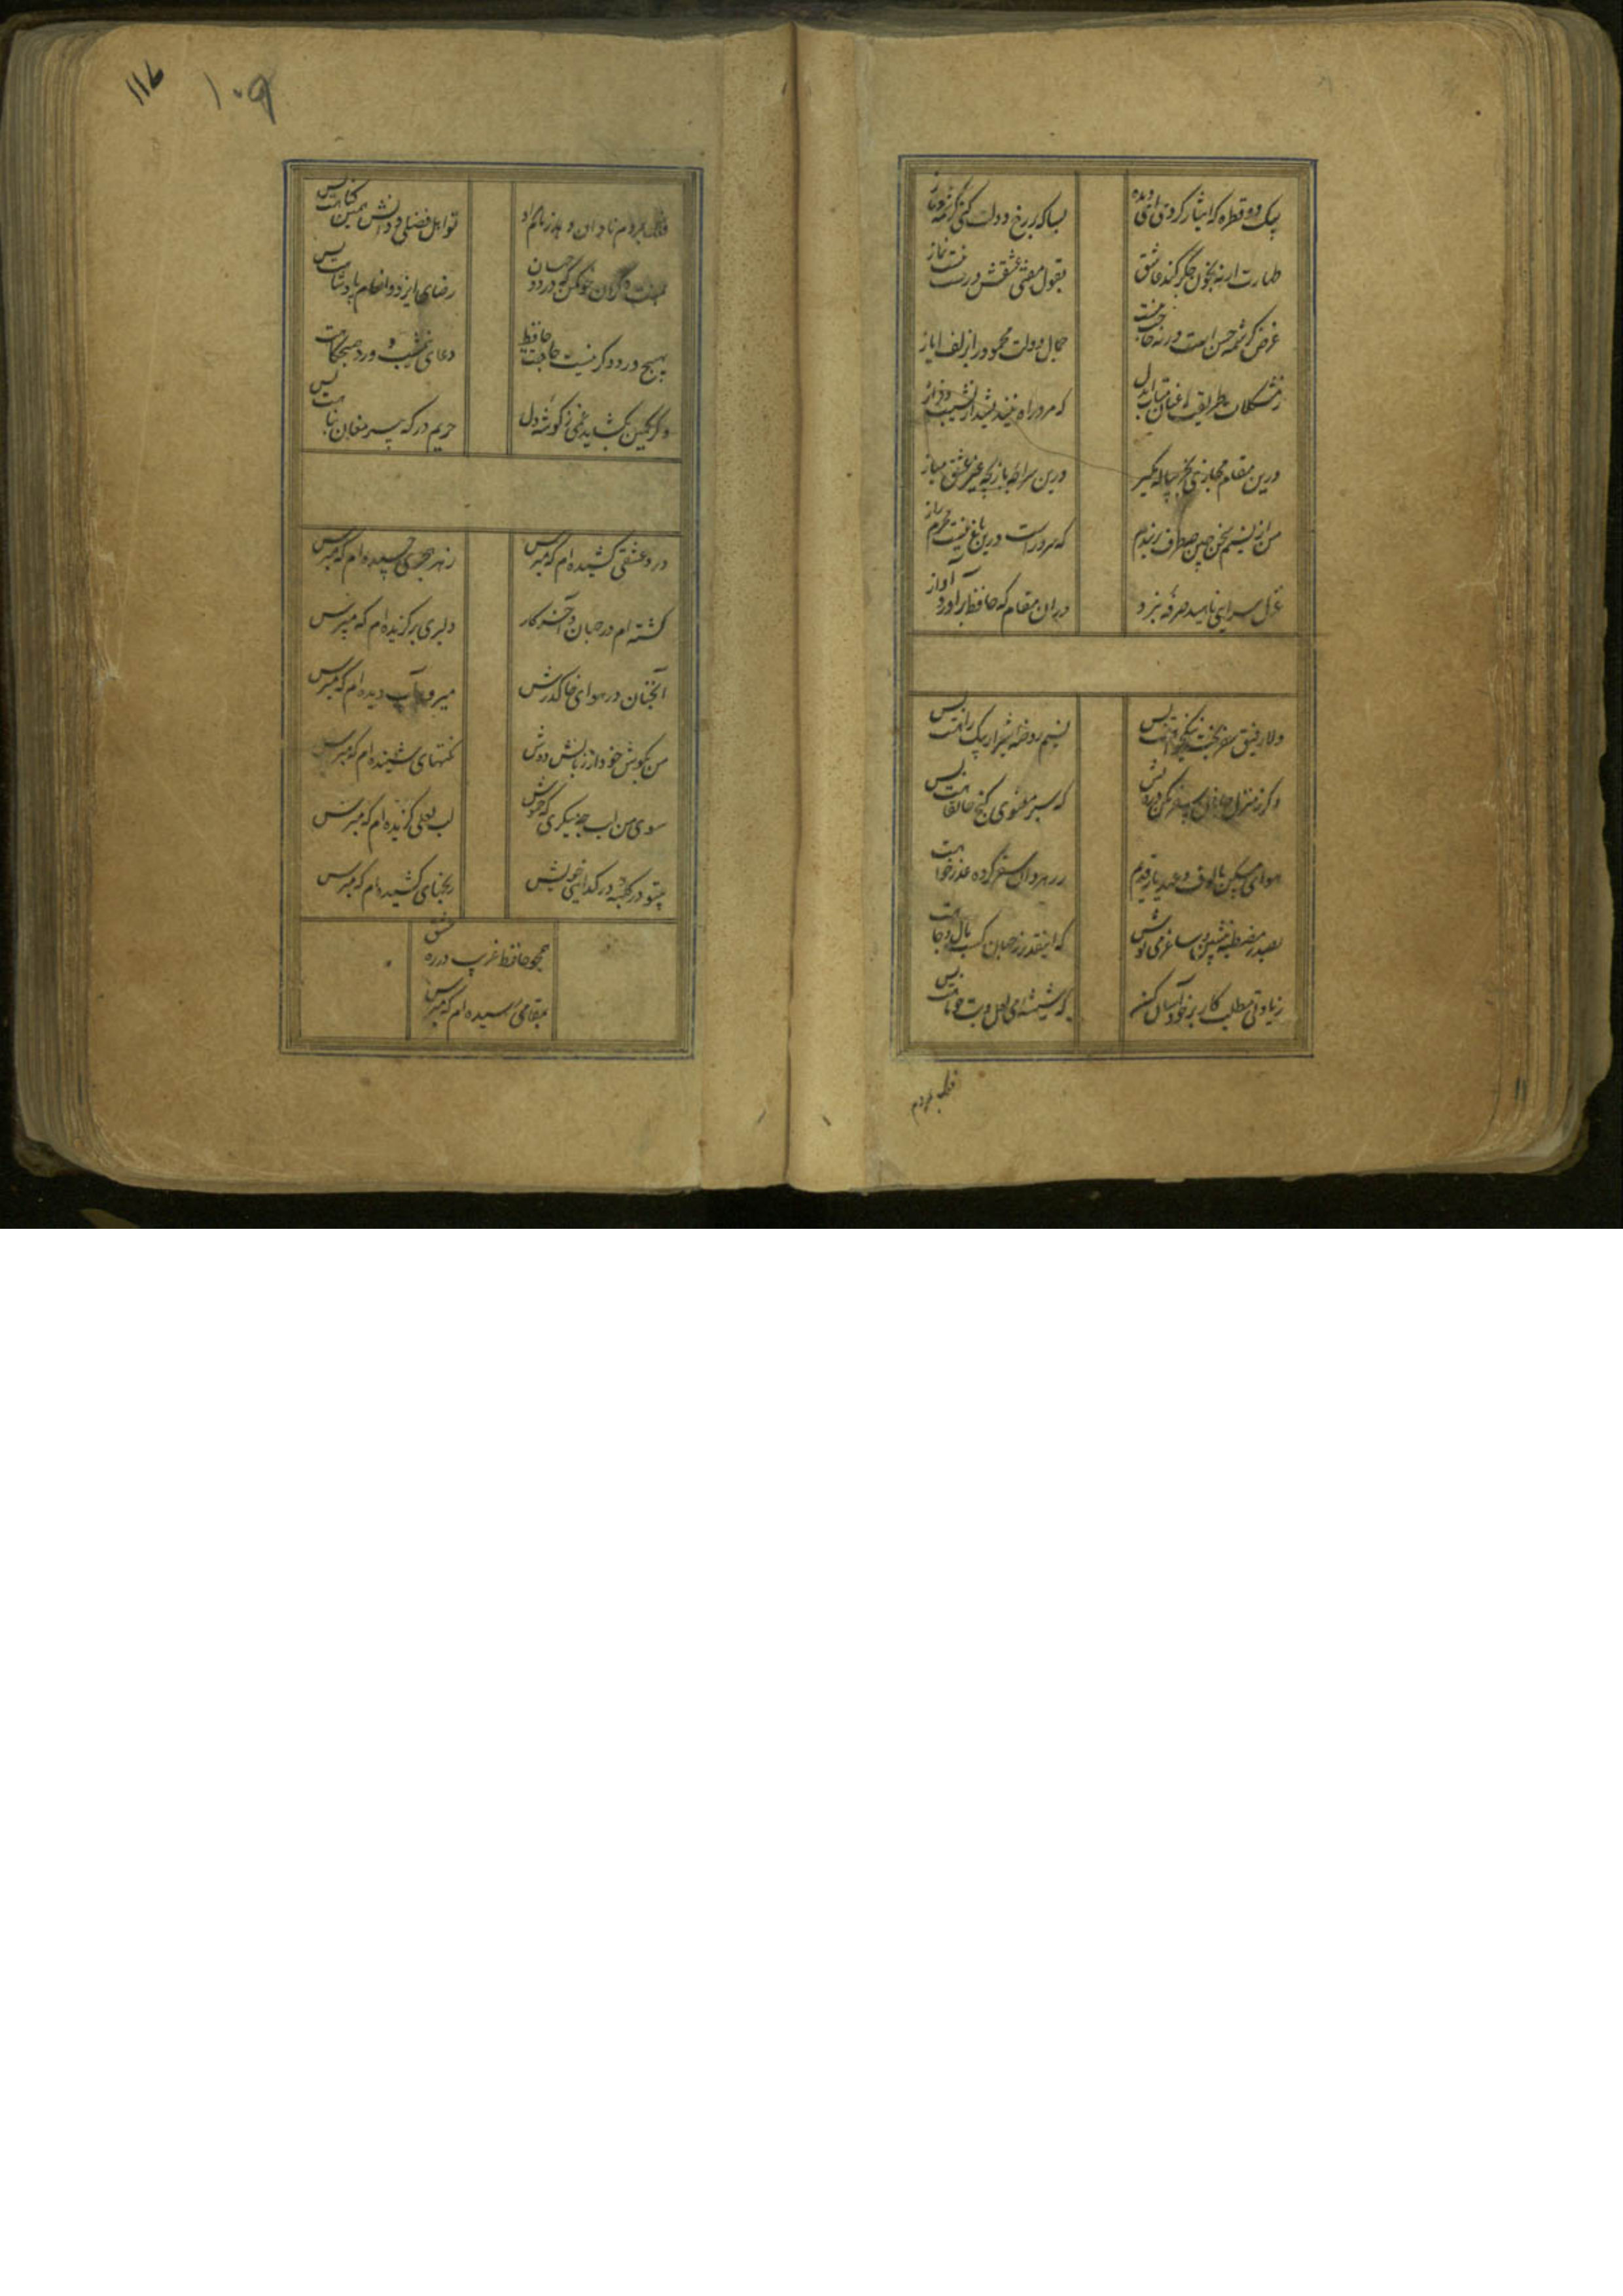 بیک دو قطره که ایثار کردی ای دیده
بسا که بر رخ دولت کنی کرشمه و ناز
طهارت ار نه بخون جگر کند عاشق
بقول مفتی عشقش درست نیست نماز
غرض کرشمه حسن است ورنه حاجت نیست
جمال دولت محمود را بزلف ایاز
ز مشکلات طریقت عنان متاب ای دل
که مرد راه نیندیشد از نشیب و فراز
درین مقام مجازی بجز پیاله مگیر
درین سراچه بازیچه غیر عشق مباز
من از نسیم سخن چین چه طرف بربندم
که سرو راست درین باغ نیست محرم راز
غزل سرایی ناهید صرفه نبرد
در ان مقام که حافظ برآورد آواز
دلا رفیق سفر بخت نیکخواهت بس
نسیم روضه شیراز پیک راهت بس
دگر ز منزل جانان سفر مکن درویش
که سیر معنوی و کنج خانقاهت بس
هوای مسکن مالوف و عهد یار قدیم
ز رهروان سفر کرده عذرخواهت بس
بصدر مصطبه بنشین و ساغر می نوش
که اینقدر ز جهان کسب مال و جاهت بس
زیادتی مطلب کار بر خود آسان کن
که شیشه می لعل و بت چو ماهت بس
فلک بمردم
۱۱۷
۱۰۹
فلک بمردم نادان دهد زمام مراد
تو اهل فضلی و دانش همین گناهت بس
بمنت دگران خو مکن که در دو جهان
رضای ایزد و انعام پادشاهت بس
بهیچ ورد دگر نیست حاجت حافظ
دعای نیمشب و ورد صبحگاهت بس
وگر کمین بگشاید غمی ز گوشه دل
حریم درگه پیر مغان پناهت بس
درد عشقی کشیده ام که مپرس
زهر هجری چشیده ام که مپرس
گشته ام در جهان و آخر کار
دلبری برگزیده ام که مپرس
آنچنان در هوای خاک درش
میرود آب دیده ام که مپرس
من بگوش خود از زبانش دوش
سخنهای شنیده ام که مپرس
سوی من لب چه میگزی که خموش
لب لعلی گزیده ام که مپرس
بیتو در کلبه گدایی خویش
رنجهای کشیده ام که مپرس
همچو حافظ غریب در ره عشق
بمقامی رسیده ام که مپرس